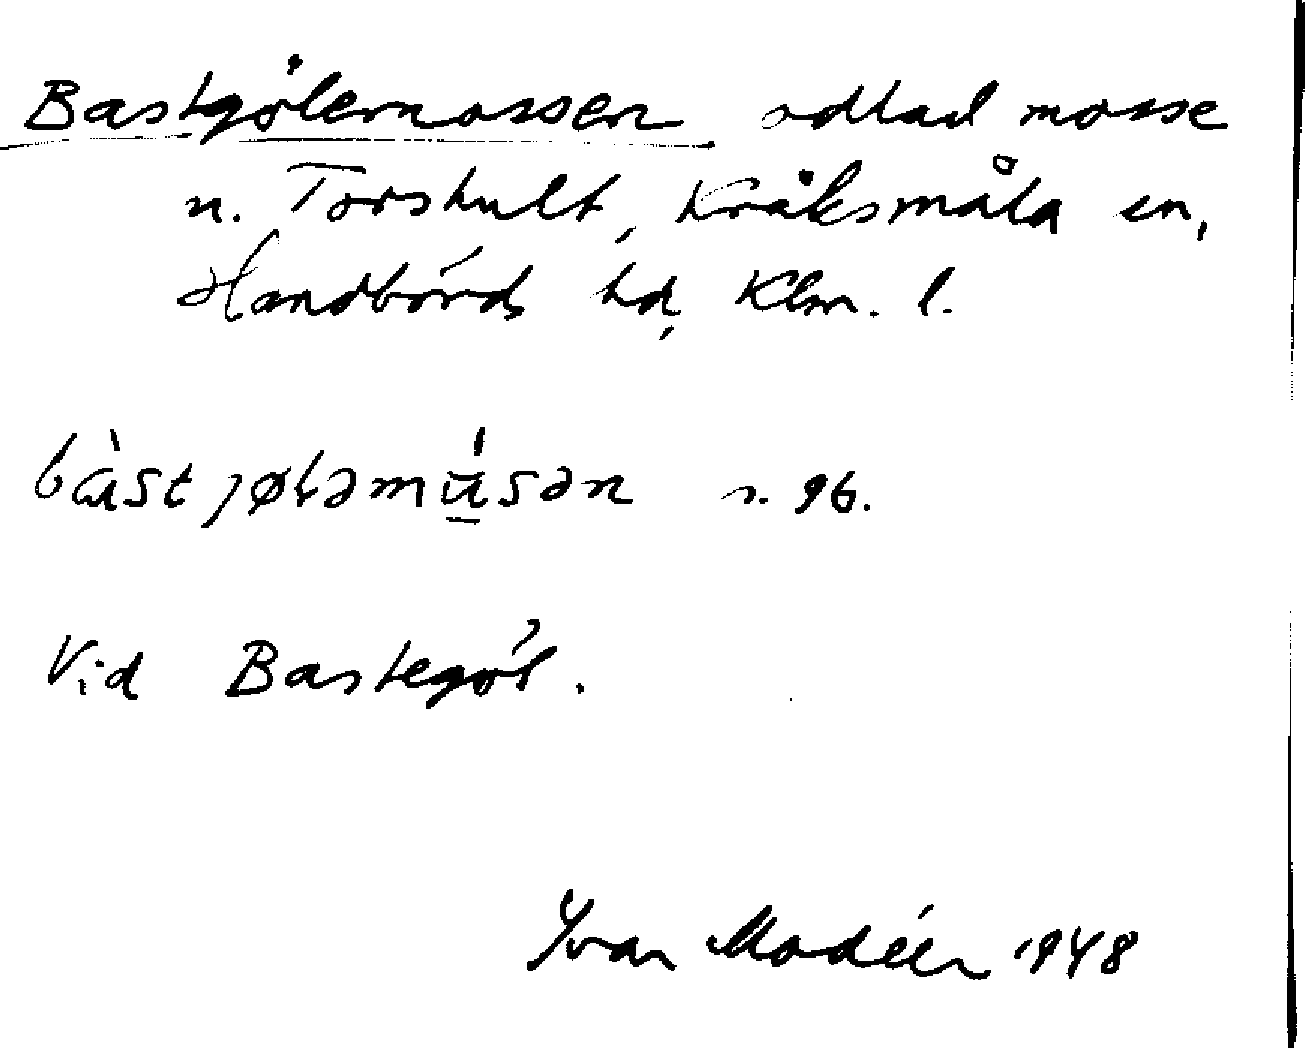 Bastgölemossen odlad mosse
n. Torshult, Kråksmåla sn,
Handbörds hd, Klm. l.
bàstjøləmúsən s. 96.
Vid Bastegöl.
Yvar Modéer 1948